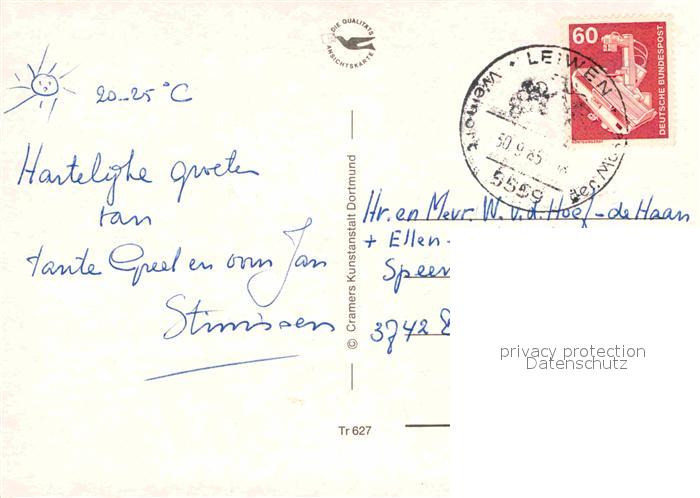 20-25 °C
Hartelijke groeten
van
tante Greel en oom Jan
Stinissen
DIE QUALITÄTS
ANSICHTSKARTE
© Cramers Kunstanstalt Dortmund
Tr 627
60
DEUTSCHE BUNDESPOST
LEIWEN
Weinort
9.85
5559
der Mos
Hr. en Mevr. W. v.d. Hoef-de Haan
+ Ellen.
Speen
3742
privacy protection
Datenschutz